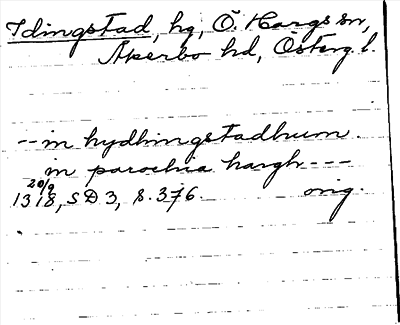 Idingstad, hg, Ö. Hargs sn,
Åkerbo hd, Österg. l.
-- in hydhingstadhum
in parochia hargh ---
20/9
1318, SD 3, s. 376. orig.